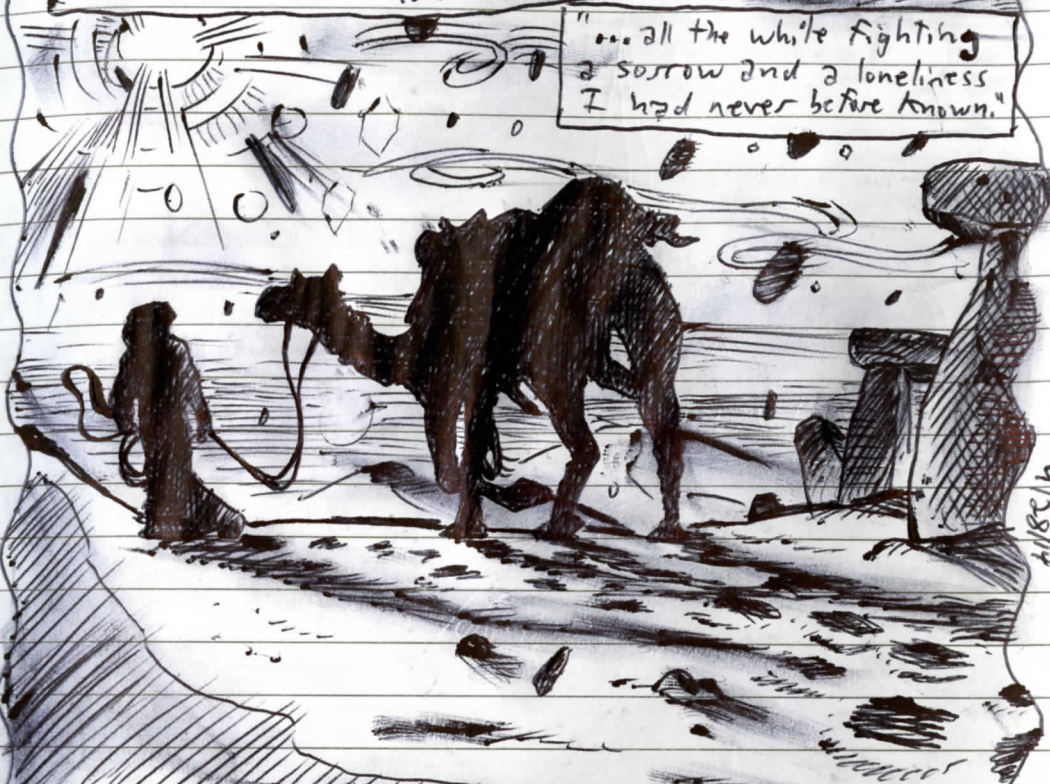 "... all the while fighting
a sorrow and a loneliness
I had never before known."
4/28/17